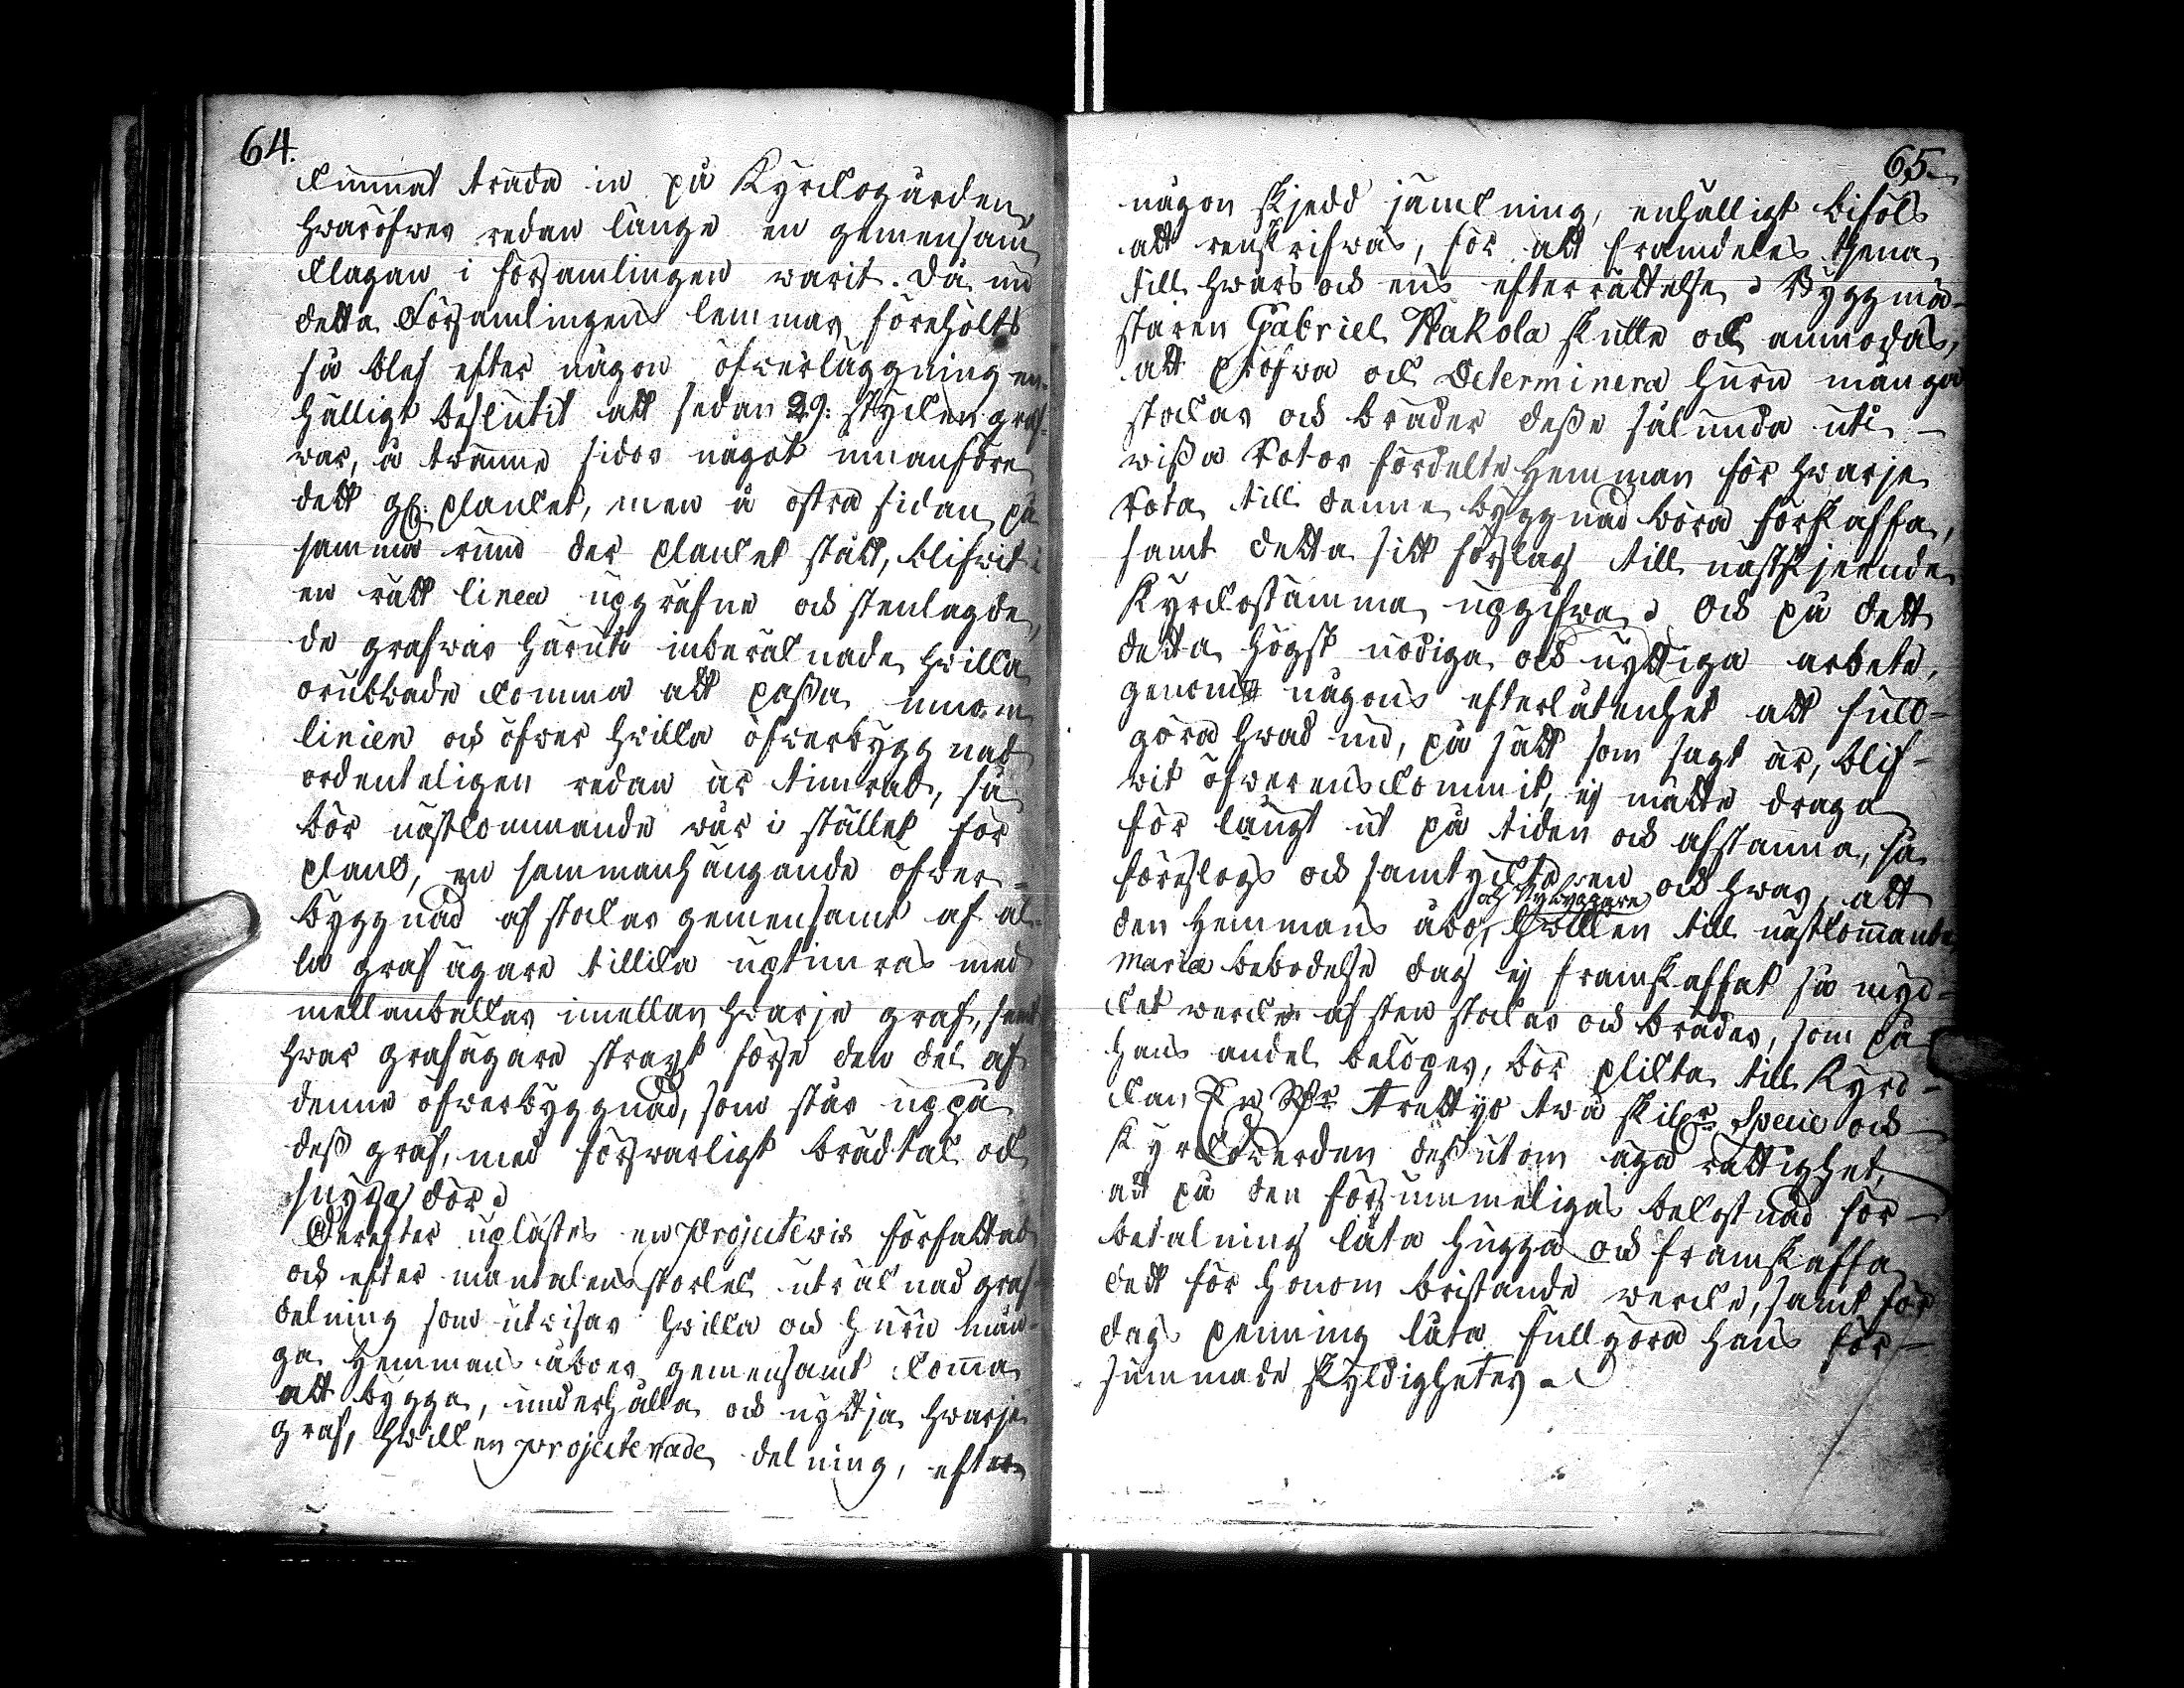 64.
kunnat träda in på Kyrckogården,
hwaröfwer redan länge en gemensam
klagan i församlingen warit. Då nu
detta Församlingens lemmar föreholts
så blef efter någon öfwerläggning en-
hälligt beslutit att sedan 29: stycken graf-
war, å twänne sidor något innanföre
dett gl: planket, men å östra sidan på
samma rum der planket stått, blifwit i
en rätt linea upgräfne och stenlagde,
de grafwar häruti inberäknade, hwilka
orubbade komma att passa innom
linien och öfwer hwilka öfwerbyggnad
ordenteligen redan är timrad, så
bör nästkommande wår i stället för
plank, en sammanhängande öfwer-
byggnad af stockar gemensamt af al-
la grafägare tillika uptimras med
mellanbalkar imellan hwarje graf, samt
hwar grafägare strax förse den del af
denne öfwerbyggnad, som står uppå
dess graf, med förswarligt brädtak och
snygg dör.
Derefter uplästes en projectewis författad
och efter mantalens storlek uträknad graf-
delning som utwisar hwilka och huru mån-
ga Hemmans åboer gemensamt komma
att bygga, underhålla och nyttja hwarje
graf, hwilken projecterade delning, efter
65.
någon skjedd jämkning, enhälligt bifóls
att renskrifwas, för att framdeles tjena
till hwars och ens efterrättelse. Byggmä-
staren Gabriel Hakola skulle och anmodas,
att pröfwa och determinera huru många
stockar och bräder desse sålunda uti
wissa Rotor fördelte Hemman för hwarje
Rota till denne byggnad böra förskaffa,
samt detta sitt förslag till nästskjeende
Kyrckostämma upgifwa. Och på dett
detta högst nödiga och nyttiga arbete,
genom någons efterlåtenhet att full-
göra hwad nu, på sätt som sagt är, blif-
wit öfwerenskommit, ej måtte draga
för långt ut på tiden och afstanna, så
föreslogs och samtyckte en och hwar, att
och Nybyggare
den Hemmans åbo, hwilken till nästkommande
Mariæ bebodelse dag ej framskaffat så myc-
ket wercke af sten stockar och bräder, som på
hans andel belöper, bör plikta till Kyrc-
kan En Rdr Trettyo twå skilr Specie och
Kyrckowerden dessutom äga rättighet,
att på den försummeligas bekostnad för
betalning låta hugga och framskaffa
dett för honom bristande wercke, samt för
dags penning låta fullgöra hans för-
summade skyldigheter.